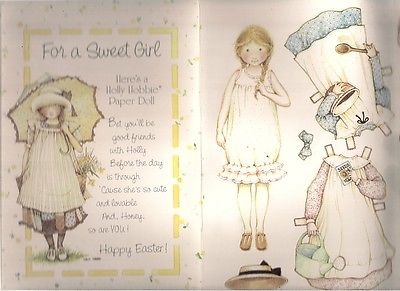 For a Sweet Girl
Here's a
Holly Hobbie*
Paper Doll
Bet you'll be
good friends
with Holly.
Before the day
is through
'Cause she's so cute
and lovable
And, Honey,
so are YOU!
Happy Easter!